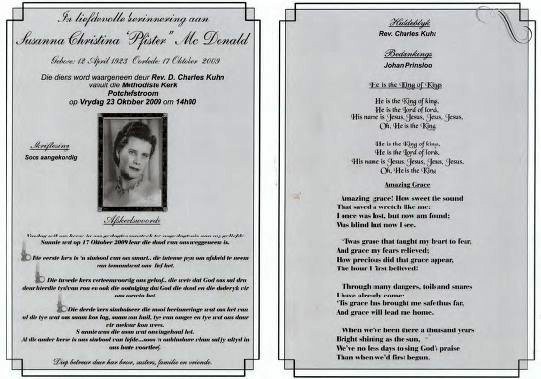 In liefdevolle herinnering aan
Susanna Christina "Pfister" Mc Donald
Gebore: 12 April 1923 Oorlede: 17 Oktober 2009
Die diens word waargeneem deur Rev. D. Charles Kuhn
vanuit die Methodiste Kerk
Potchefstroom
op Vrydag 23 Oktober 2009 om 14h00
Skriflesing
Soos aangekondig
Afskeidswoorde
Sannie wat op 17 Oktober 2009 deur die dood van ons weggeneem is.
Die eerste kers is 'n simbool van ons smart.. die intense pyn om afskeid te neem
van iemand wat ons lief het.
Die tweede kers verteenwoordig ons geloof.. die wete dat God ons sal dra
deur hierdie tyd van rou en ook die oortuiging dat God die dood en die duisternis vir
ons oorwin het.
Die derde kers simboliseer die mooi herinneringe wat ons het van
al die tye wat ons saam kon lag, saam kon huil, tye van sorge en tye wat ons daar
vir mekaar kon wees.
Sannie was die mens wat ons ingebind het.
Diep betreur deur haar broer, susters, familie en vriende.
Huldeblyk
Rev. Charles Kuhn
Bedankings
Johan Prinsloo
He is the King of Kings
He is the King of kings,
He is the Lord of lords,
His name is Jesus, Jesus, Jesus, Jesus,
Oh, He is the King.
He is the King of kings,
He is the Lord of lords,
His name is Jesus, Jesus, Jesus, Jesus,
Oh, He is the King
Amazing Grace
Amazing grace! How sweet the sound
That saved a wretch like me;
I once was lost, but now am found;
Was blind but now I see.
'Twas grace that taught my heart to fear,
And grace my fears relieved;
How precious did that grace appear,
The hour I first believed!
Through many dangers, toils and snares
I have already come;
'Tis grace has brought me safe thus far,
And grace will lead me home.
When we've been there a thousand years
Bright shining as the sun,
We've no less days to sing God's praise
Than when we'd first begun.